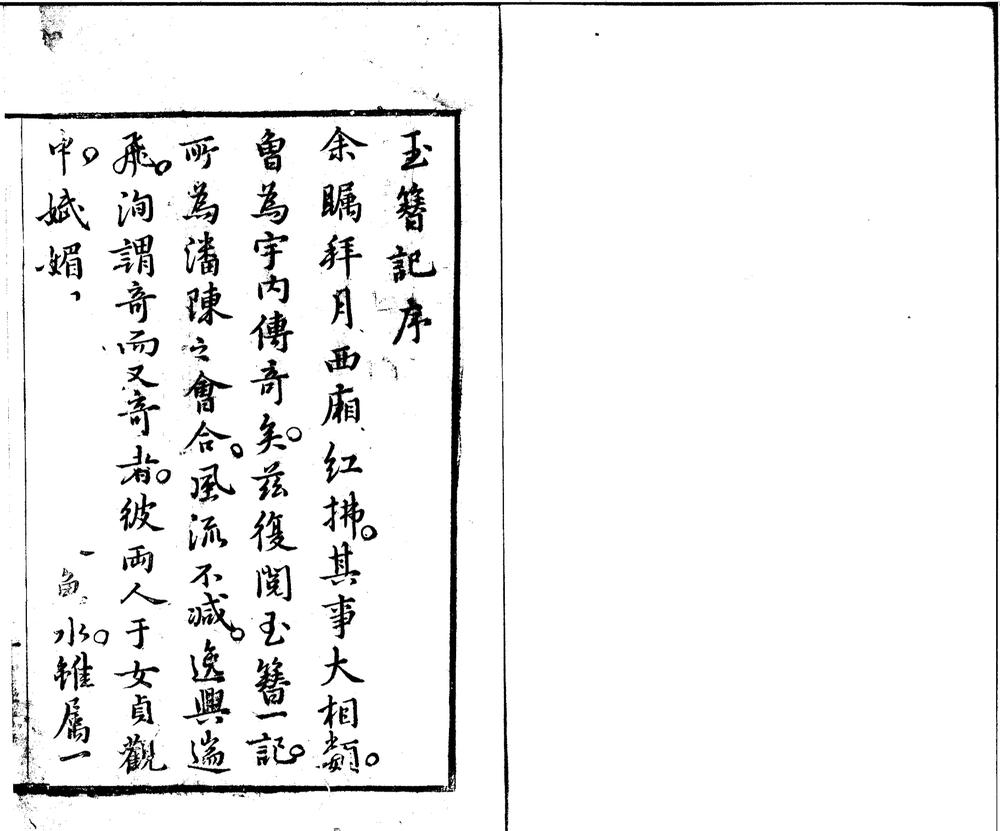 玉簪記序
余矚拜月西廂紅拂。其事大相類。
曾為宇内傳奇矣。茲復閱玉簪一記。
所為潘陳之會合。風流不减。逸興遄
飛。洵謂奇而又奇者。彼兩人于女貞觀
中。娬媚 一 魚水。雖属一